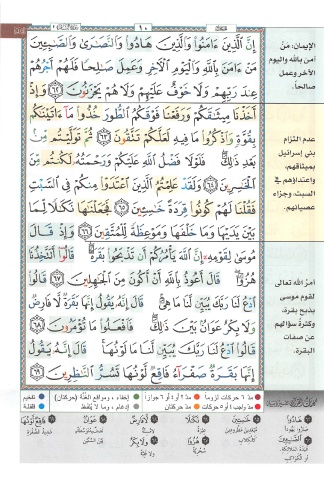 ١٠
إِنَّ ٱلَّذِينَ ءَامَنُوا۟ وَٱلَّذِينَ هَادُوا۟ وَٱلنَّصَـٰرَىٰ وَٱلصَّـٰبِـِٔينَ
مَنْ ءَامَنَ بِٱللَّهِ وَٱلْيَوْمِ ٱلْـَٔاخِرِ وَعَمِلَ صَـٰلِحًا فَلَهُمْ أَجْرُهُمْ
عِندَ رَبِّهِمْ وَلَا خَوْفٌ عَلَيْهِمْ وَلَا هُمْ يَحْزَنُونَ ٦٢ وَإِذْ
أَخَذْنَا مِيثَـٰقَكُمْ وَرَفَعْنَا فَوْقَكُمُ ٱلطُّورَ خُذُوا۟ مَآ ءَاتَيْنَـٰكُم
بِقُوَّةٍ وَٱذْكُرُوا۟ مَا فِيهِ لَعَلَّكُمْ تَتَّقُونَ ٦٣ ثُمَّ تَوَلَّيْتُم مِّنۢ
بَعْدِ ذَٰلِكَ ۖ فَلَوْلَا فَضْلُ ٱللَّهِ عَلَيْكُمْ وَرَحْمَتُهُۥ لَكُنتُم مِّنَ
ٱلْخَـٰسِرِينَ ٦٤ وَلَقَدْ عَلِمْتُمُ ٱلَّذِينَ ٱعْتَدَوْا۟ مِنكُمْ فِى ٱلسَّبْتِ
فَقُلْنَا لَهُمْ كُونُوا۟ قِرَدَةً خَـٰسِـِٔينَ ٦٥ فَجَعَلْنَـٰهَا نَكَـٰلًا لِّمَا
بَيْنَ يَدَيْهَا وَمَا خَلْفَهَا وَمَوْعِظَةً لِّلْمُتَّقِينَ ٦٦ وَإِذْ قَالَ
مُوسَىٰ لِقَوْمِهِۦٓ إِنَّ ٱللَّهَ يَأْمُرُكُمْ أَن تَذْبَحُوا۟ بَقَرَةً ۖ قَالُوٓا۟ أَتَتَّخِذُنَا
هُزُوًا ۖ قَالَ أَعُوذُ بِٱللَّهِ أَنْ أَكُونَ مِنَ ٱلْجَـٰهِلِينَ ٦٧ قَالُوا۟
ٱدْعُ لَنَا رَبَّكَ يُبَيِّن لَّنَا مَا هِىَ ۚ قَالَ إِنَّهُۥ يَقُولُ إِنَّهَا بَقَرَةٌ لَّا فَارِضٌ
وَلَا بِكْرٌ عَوَانٌۢ بَيْنَ ذَٰلِكَ ۖ فَٱفْعَلُوا۟ مَا تُؤْمَرُونَ ٦٨
قَالُوا۟ ٱدْعُ لَنَا رَبَّكَ يُبَيِّن لَّنَا مَا لَوْنُهَا ۚ قَالَ إِنَّهُۥ يَقُولُ
إِنَّهَا بَقَرَةٌ صَفْرَآءُ فَاقِعٌ لَّوْنُهَا تَسُرُّ ٱلنَّـٰظِرِينَ ٦٩
الإيمان: مَنْ
آمن بالله واليوم
الآخر وعمل
صالحاً.
عدم التزام
بني إسرائيل
بميثاقهم،
واعتداؤهم في
السبت، وجزاء
عصيانهم.
أمرُ الله تعالى
لقوم موسى
بذبح بقرة،
وكثرةُ سؤالهم
عن صفات
البقرة.
مدّ ٦ حركات لزوماً
مدّ ٢ أو ٤ أو ٦ جوازاً
إخفاء، ومواقع الغُنَّة (حركتان)
تفخيم
مدّ واجب ٤ أو ٥ حركات
مدّ حركتان
إدغام، وما لا يُلفظ
قلقلة
هَادُوا۟
خَـٰسِـِٔينَ
نَكَـٰلًا
لَّا فَارِضٌ
عَوَانٌ
فَاقِعٌ لَّوْنُهَا
ٱلصَّـٰبِـِٔينَ
هُزُوًا
وَلَا بِكْرٌ